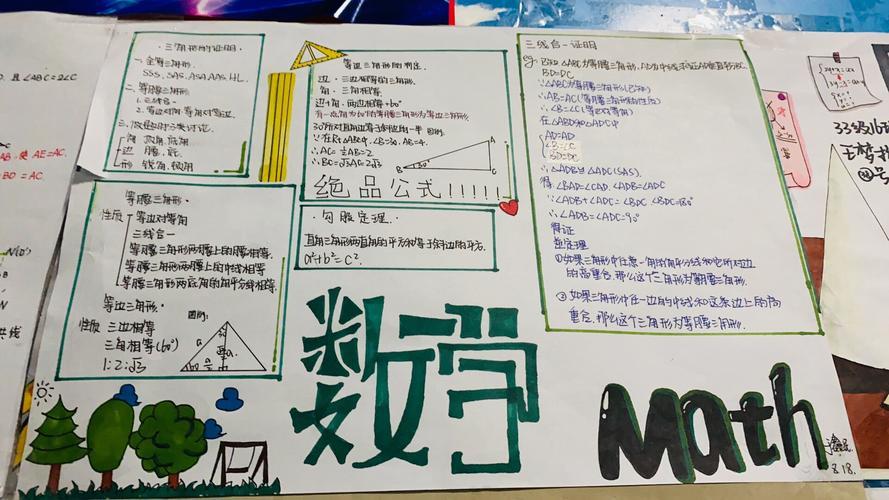 三角形的证明.
一.全等三角形.
SSS, SAS, ASA, AAS, HL.
二.等腰三角形
1.三线合一
2.等边对等角,等角对等边.
角
边 腰,底.
形 锐角,钝角
等边三角形的判定
边:三边相等的三角形.
角:三角相等.
边+角:两边相等+60°
有一个角为60°的等腰三角形为等边三角形.
30°所对直角边等于斜边的一半 图例:
∵在Rt△ABC中,∠B=30°, AB=4.
∴AC=½AB=2
∴BC=√3AC=2√3
A
B
30°
C
绝品公式!!!!!
·勾股定理.
直角三角形两直角的平方和等于斜边的平方.
a²+b²=c².
等腰三角形·
性质 等边对等角
三线合一
等腰三角形两腰上的高相等.
等腰三角形两腰上的中线相等
等腰三角形两底角的角平分线相等.
等边三角形.
图例:
性质 三边相等
三角相等(60°)
1:2:√3
三线合一证明
BD=DC
∵△ABC为等腰三角形(已知)
∴AB=AC(等腰三角形的性质)
∴∠B=∠C(等边对等角)
在△ABD和△ADC中
AD=AD
∠B=∠C
BD=DC
∴△ADB≌△ADC(SAS).
得 ∠BAD=∠CAD, ∠ADB=∠ADC
∴∠ADB=∠ADC=90°
得证
逆定理
①如果三角形中任意一角的角平分线和它所对边
的高重合,那么这个三角形为等腰三角形.
②如果三角形中任一边的中线和这条边上的高
重合,那么这个三角形为等腰三角形.
数学
Math
8.18.
且∠ABC=2∠C
使 AE=AC.
BD=AC.
共线